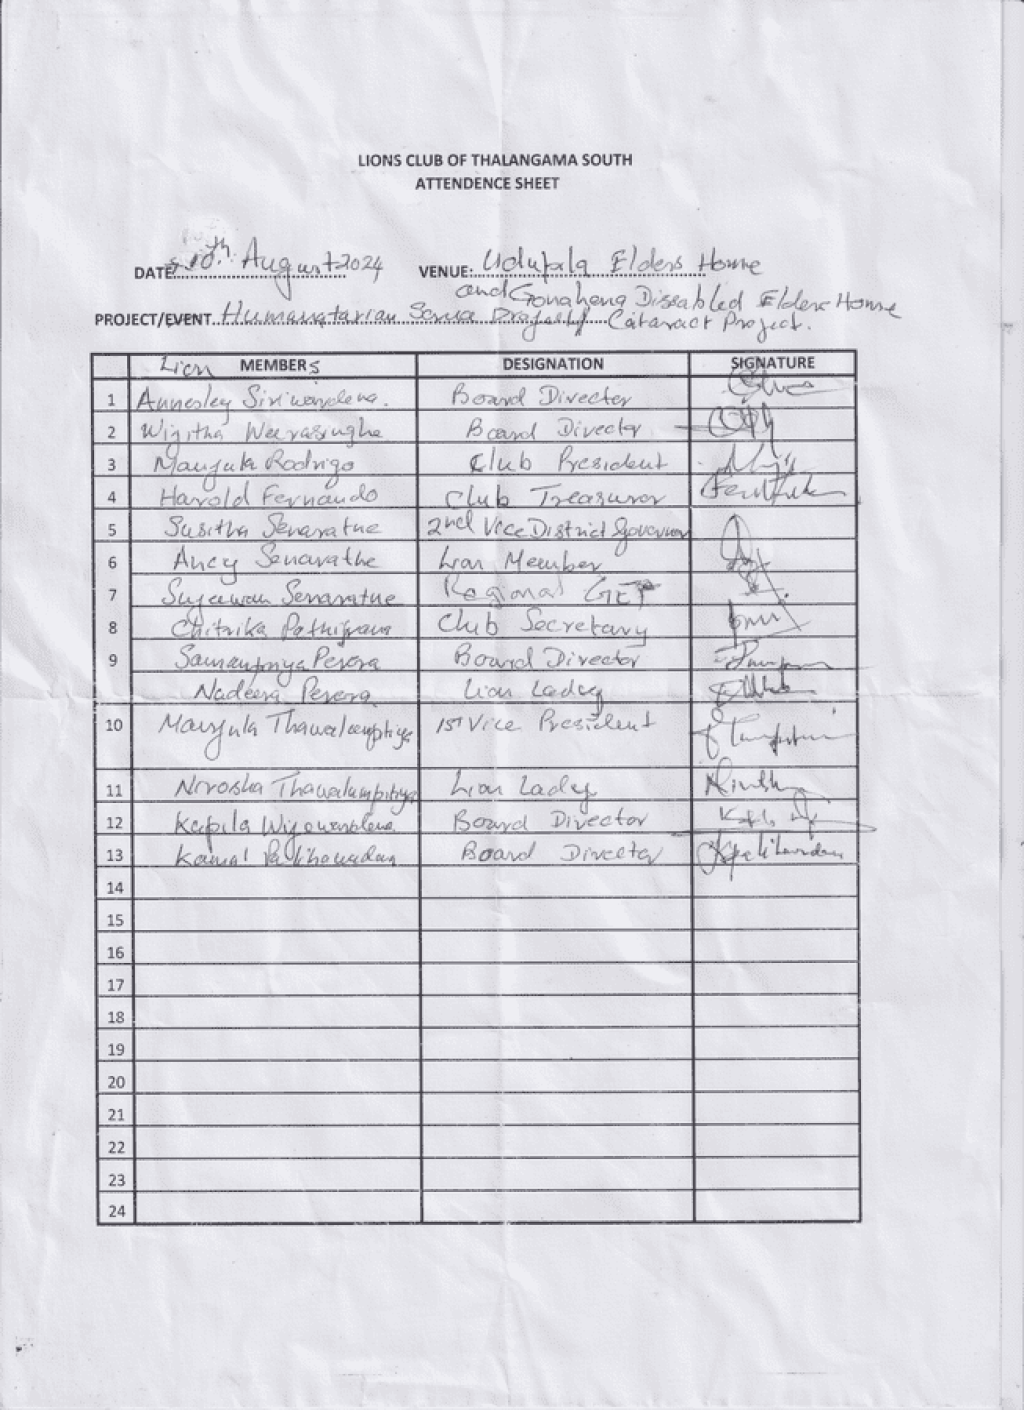 LIONS CLUB OF THALANGAMA SOUTH
ATTENDENCE SHEET
DATE 10th August 2024 VENUE: Udupala Elders Home
and Gonahena Dissabled Elders Home
PROJECT/EVENT Humanatarian Cataract Project.
Lion MEMBERS DESIGNATION SIGNATURE
1 Annesley Siriwardena. Board Director
2 Wijitha Weerasinghe Board Director
3 Manjula Rodrigo Club President
4 Harold Fernando Club Treasurer
5 Susitha Senaratne 2nd Vice District Governor
6 Ancy Senarathe Lion Member
7 Senaratne Regional GET
8 Chitrika Club Secretary
9 Samanpriya Perera Board Director
Nadeera Perera Lion Ladey
10 Manjula 1st Vice President
11 Nirosha Thawalampitiya Lion Ladey
12 Kapila Wijewardena Board Director
13 Kamal Board Director
14
15
16
17
18
19
20
21
22
23
24